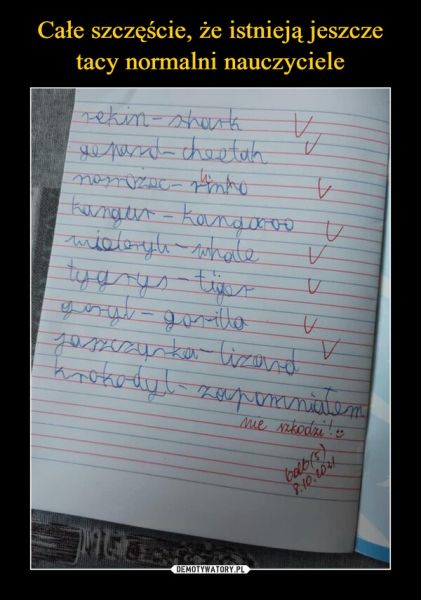 Całe szczęście, że istnieją jeszcze
tacy normalni nauczyciele
rekin - shark
gepard - cheetah
nosorożec - rinho
kangur - kangaroo
wieloryb - whale
tygrys - tiger
goryl - gorilla
jaszczurka - lizard
krokodyl - zapomniałem
nie szkodzi! ☺
bdb (5)
8.10.2021
DEMOTYWATORY.PL